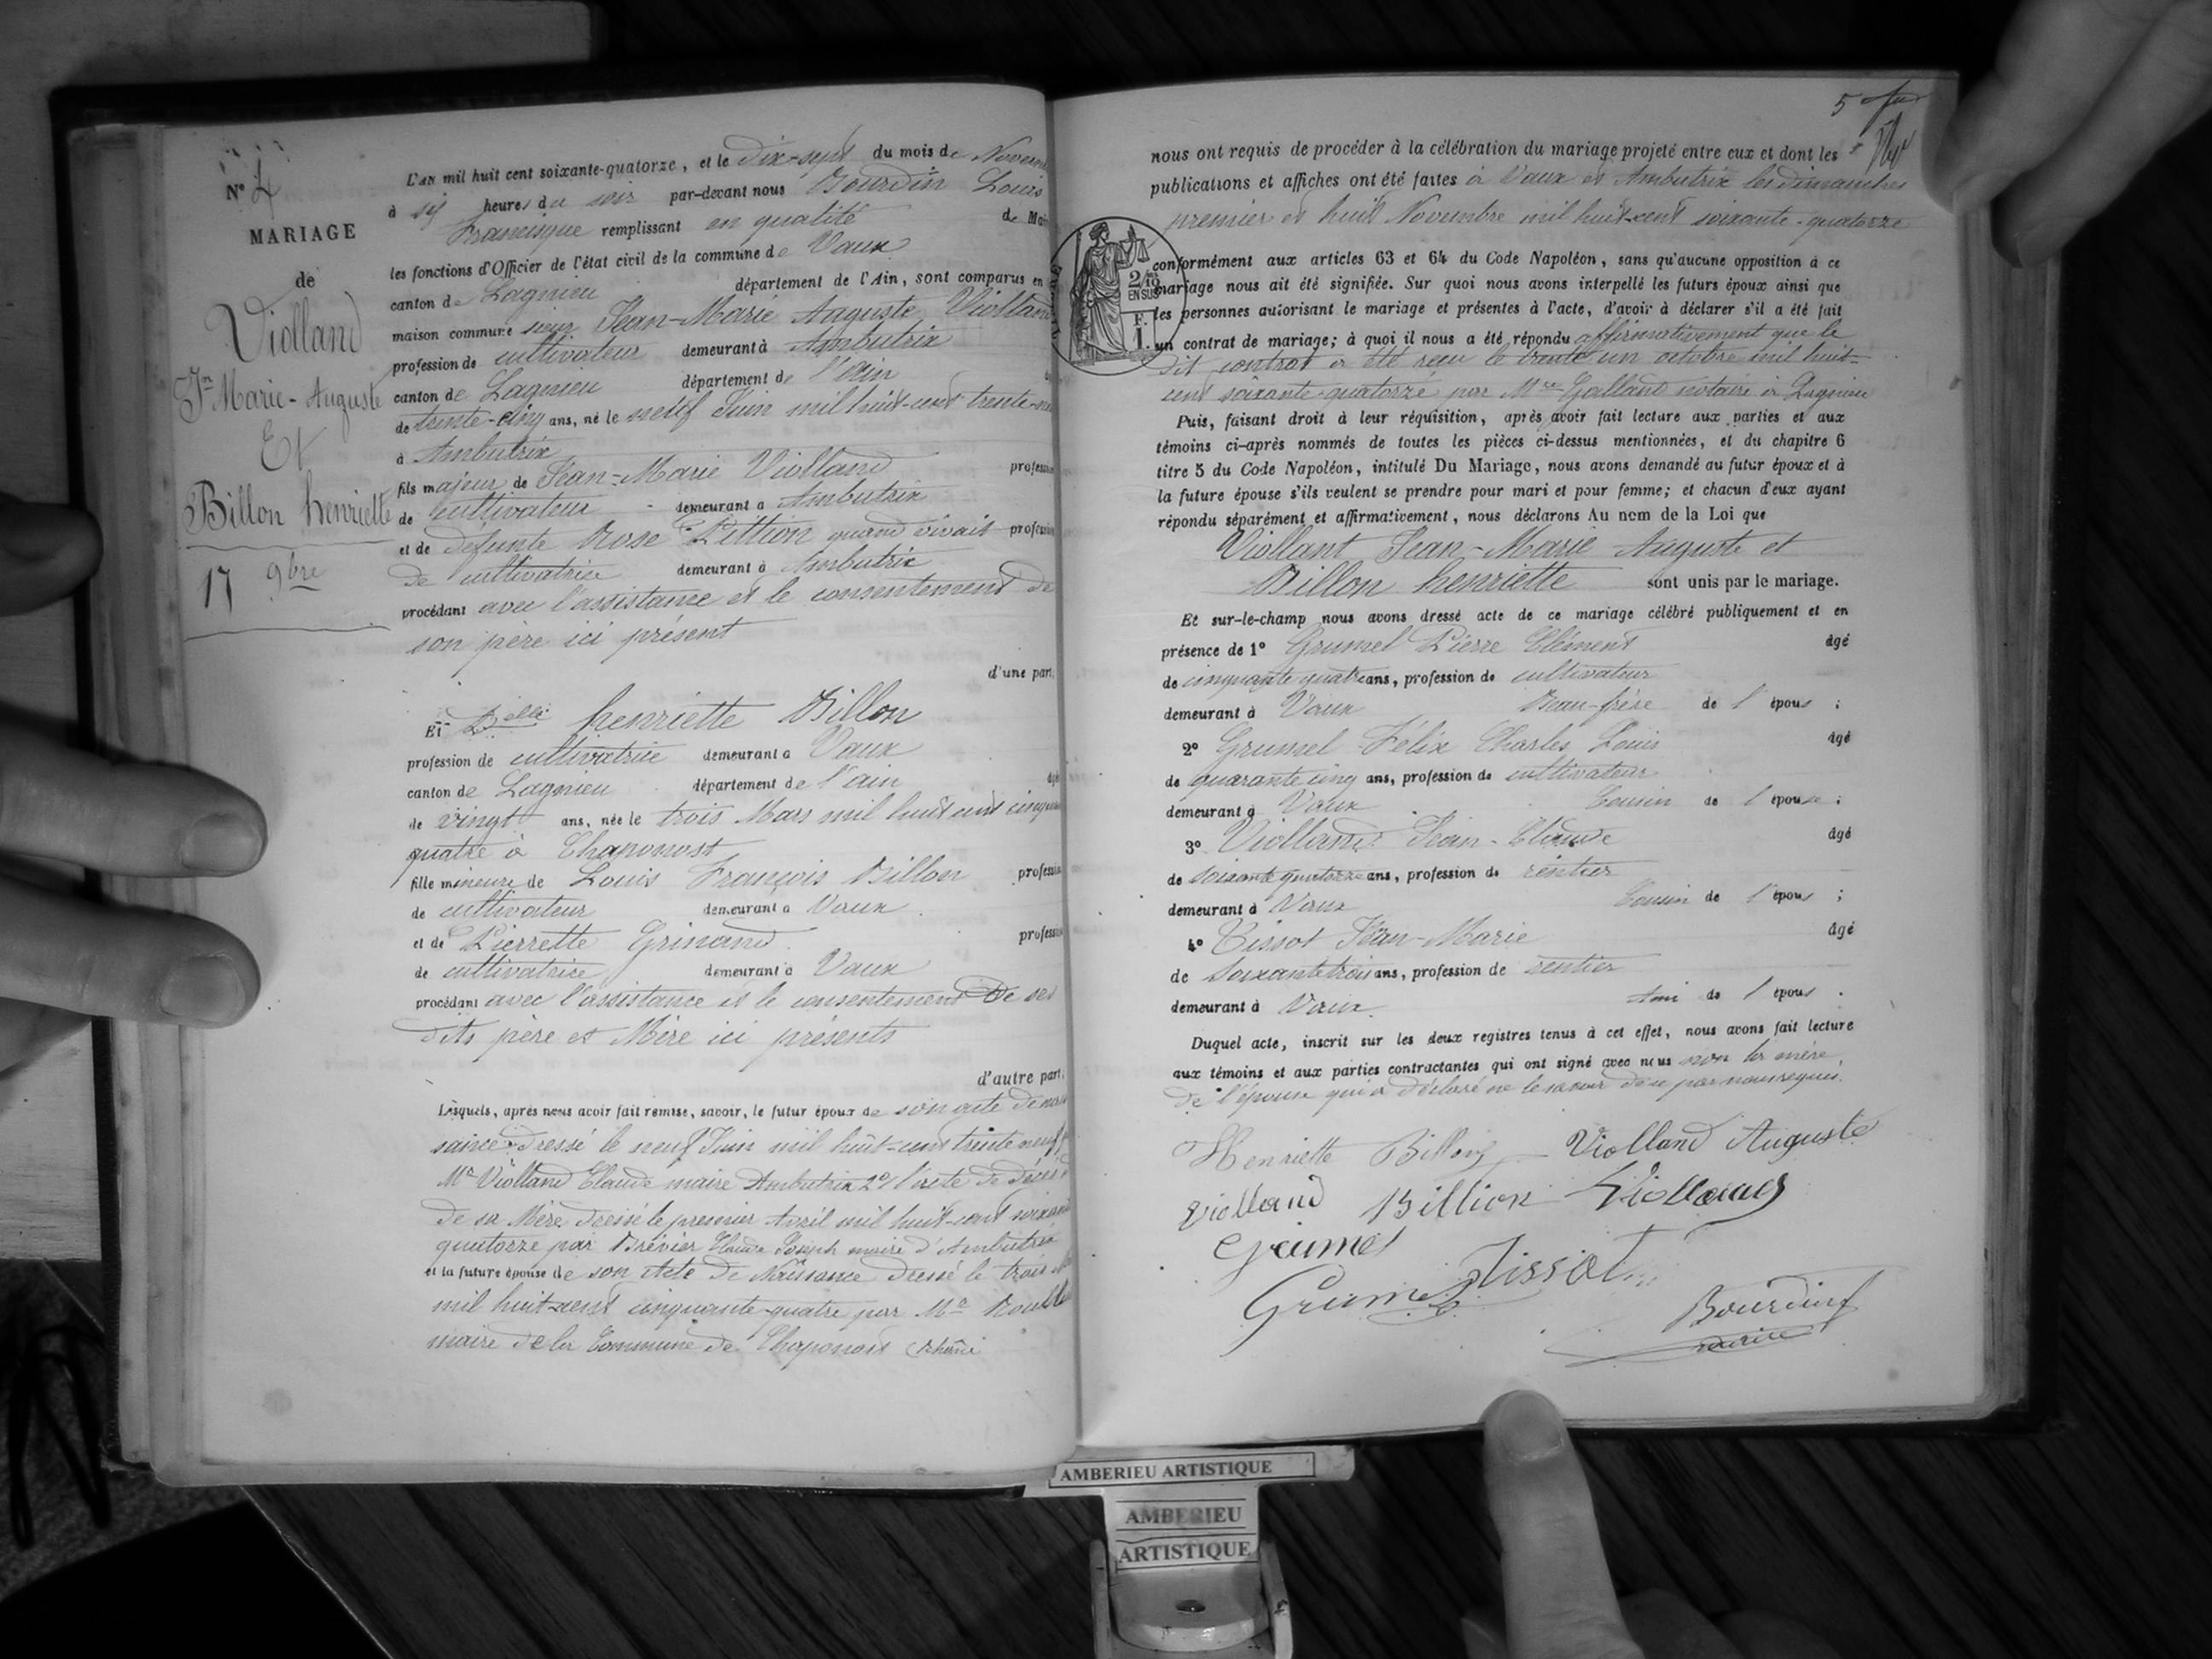 N° 4
MARIAGE
de
Violland
Jn Marie-Auguste
Et
Billon henriette
17 9bre
L'an mil huit cent soixante-quatorze, et le Dix-sept du mois de Novem
à six heures du soir par-devant nous Bourdin Louis
Francisque remplissant en qualité de Mai
les fonctions d'Officier de l'état civil de la commune de Vaux
canton de Lagnieu département de l'Ain, sont comparus en
maison commune sieur Jean-Marie Auguste Violland
profession de cultivateur demeurant à Ambutrix
canton de Lagnieu département de l'ain
de trente-cinq ans, né le neuf Juin mil huit-cent trente-ne
à Ambutrix
fils majeur de Jean-Marie Violland profession
de cultivateur demeurant à Ambutrix
et de defunte Rose Pittion quand vivait profession
de cultivatrice demeurant à Ambutrix
procédant avec l'assistance et le consentement de
son père ici présent
d'une part,
Et Delle henriette Billon
profession de cultivatrice demeurant à Vaux
canton de Lagnieu département de l'ain âgé
de vingt ans, née le trois Mars mil huit cent cinqua
quatre à Chaponost
fille mineure de Louis François Billon profession
de cultivateur demeurant à Vaux
et de Pierrette Grinand profession
de cultivatrice demeurant à Vaux
procédant avec l'assistance et le consentement de ses
dits père et Mère ici présents
d'autre part.
Lesquels, après nous avoir fait remise, savoir, le futur époux de son acte de nais
sance dressé le neuf Juin mil huit-cent trente neuf
Mr Violland Claude maire Ambutrix 2° l'acte de décès
de sa Mère dressé le premier Avril mil huit-cent soixan
quatorze par Brévier Claude Joseph maire d'Ambutrix
et la future épouse de son Acte de Naissance dressé le trois
mil huit-cent cinquante-quatre par Mr
maire de la Commune de Chaponost Rhône
5
nous ont requis de procéder à la célébration du mariage projeté entre eux et dont les
publications et affiches ont été faites à Vaux et Ambutrix les dimanches
premier et huit Novembre mil huit-cent soixante-quatorze
2/10 EN SUS
F. 1.
conformément aux articles 63 et 64 du Code Napoléon, sans qu'aucune opposition à ce
mariage nous ait été signifiée. Sur quoi nous avons interpellé les futurs époux ainsi que
les personnes autorisant le mariage et présentes à l'acte, d'avoir à déclarer s'il a été fait
un contrat de mariage; à quoi il nous a été répondu affirmativement que le
dit contrat a été reçu le trente un octobre mil huit-
cent soixante-quatorze par Mre Galland notaire à Lagnieu
Puis, faisant droit à leur réquisition, après avoir fait lecture aux parties et aux
témoins ci-après nommés de toutes les pièces ci-dessus mentionnées, et du chapitre 6
titre 5 du Code Napoléon, intitulé Du Mariage, nous avons demandé au futur époux et à
la future épouse s'ils veulent se prendre pour mari et pour femme; et chacun d'eux ayant
répondu séparément et affirmativement, nous déclarons Au nom de la Loi que
Viollant Jean-Marie Auguste et
Billon henriette sont unis par le mariage.
Et sur-le-champ nous avons dressé acte de ce mariage célébré publiquement et en
présence de 1° Grumel Pierre Clément âgé
de cinquante quatre ans, profession de cultivateur
demeurant à Vaux Beau-frère de l'époux ;
2° Grumel Félix Charles Louis âgé
de quarante cinq ans, profession de cultivateur
demeurant à Vaux Cousin de l'épouse ;
3° Violland Jean-Claude âgé
de soixante quatorze ans, profession de rentier
demeurant à Vaux Cousin de l'époux ;
4° Tissot Jean-Marie âgé
de soixante trois ans, profession de rentier
demeurant à Vaux Ami de l'époux .
Duquel acte, inscrit sur les deux registres tenus à cet effet, nous avons fait lecture
aux témoins et aux parties contractantes qui ont signé avec nous non la mère
de l'épouse qui a déclaré ne le savoir de ce par nous requis.
Henriette Billon Violland Auguste
Violland Billion Violland
Grumel
Grumel Tissot
Bourdin
maire
AMBERIEU ARTISTIQUE
AMBERIEU
ARTISTIQUE